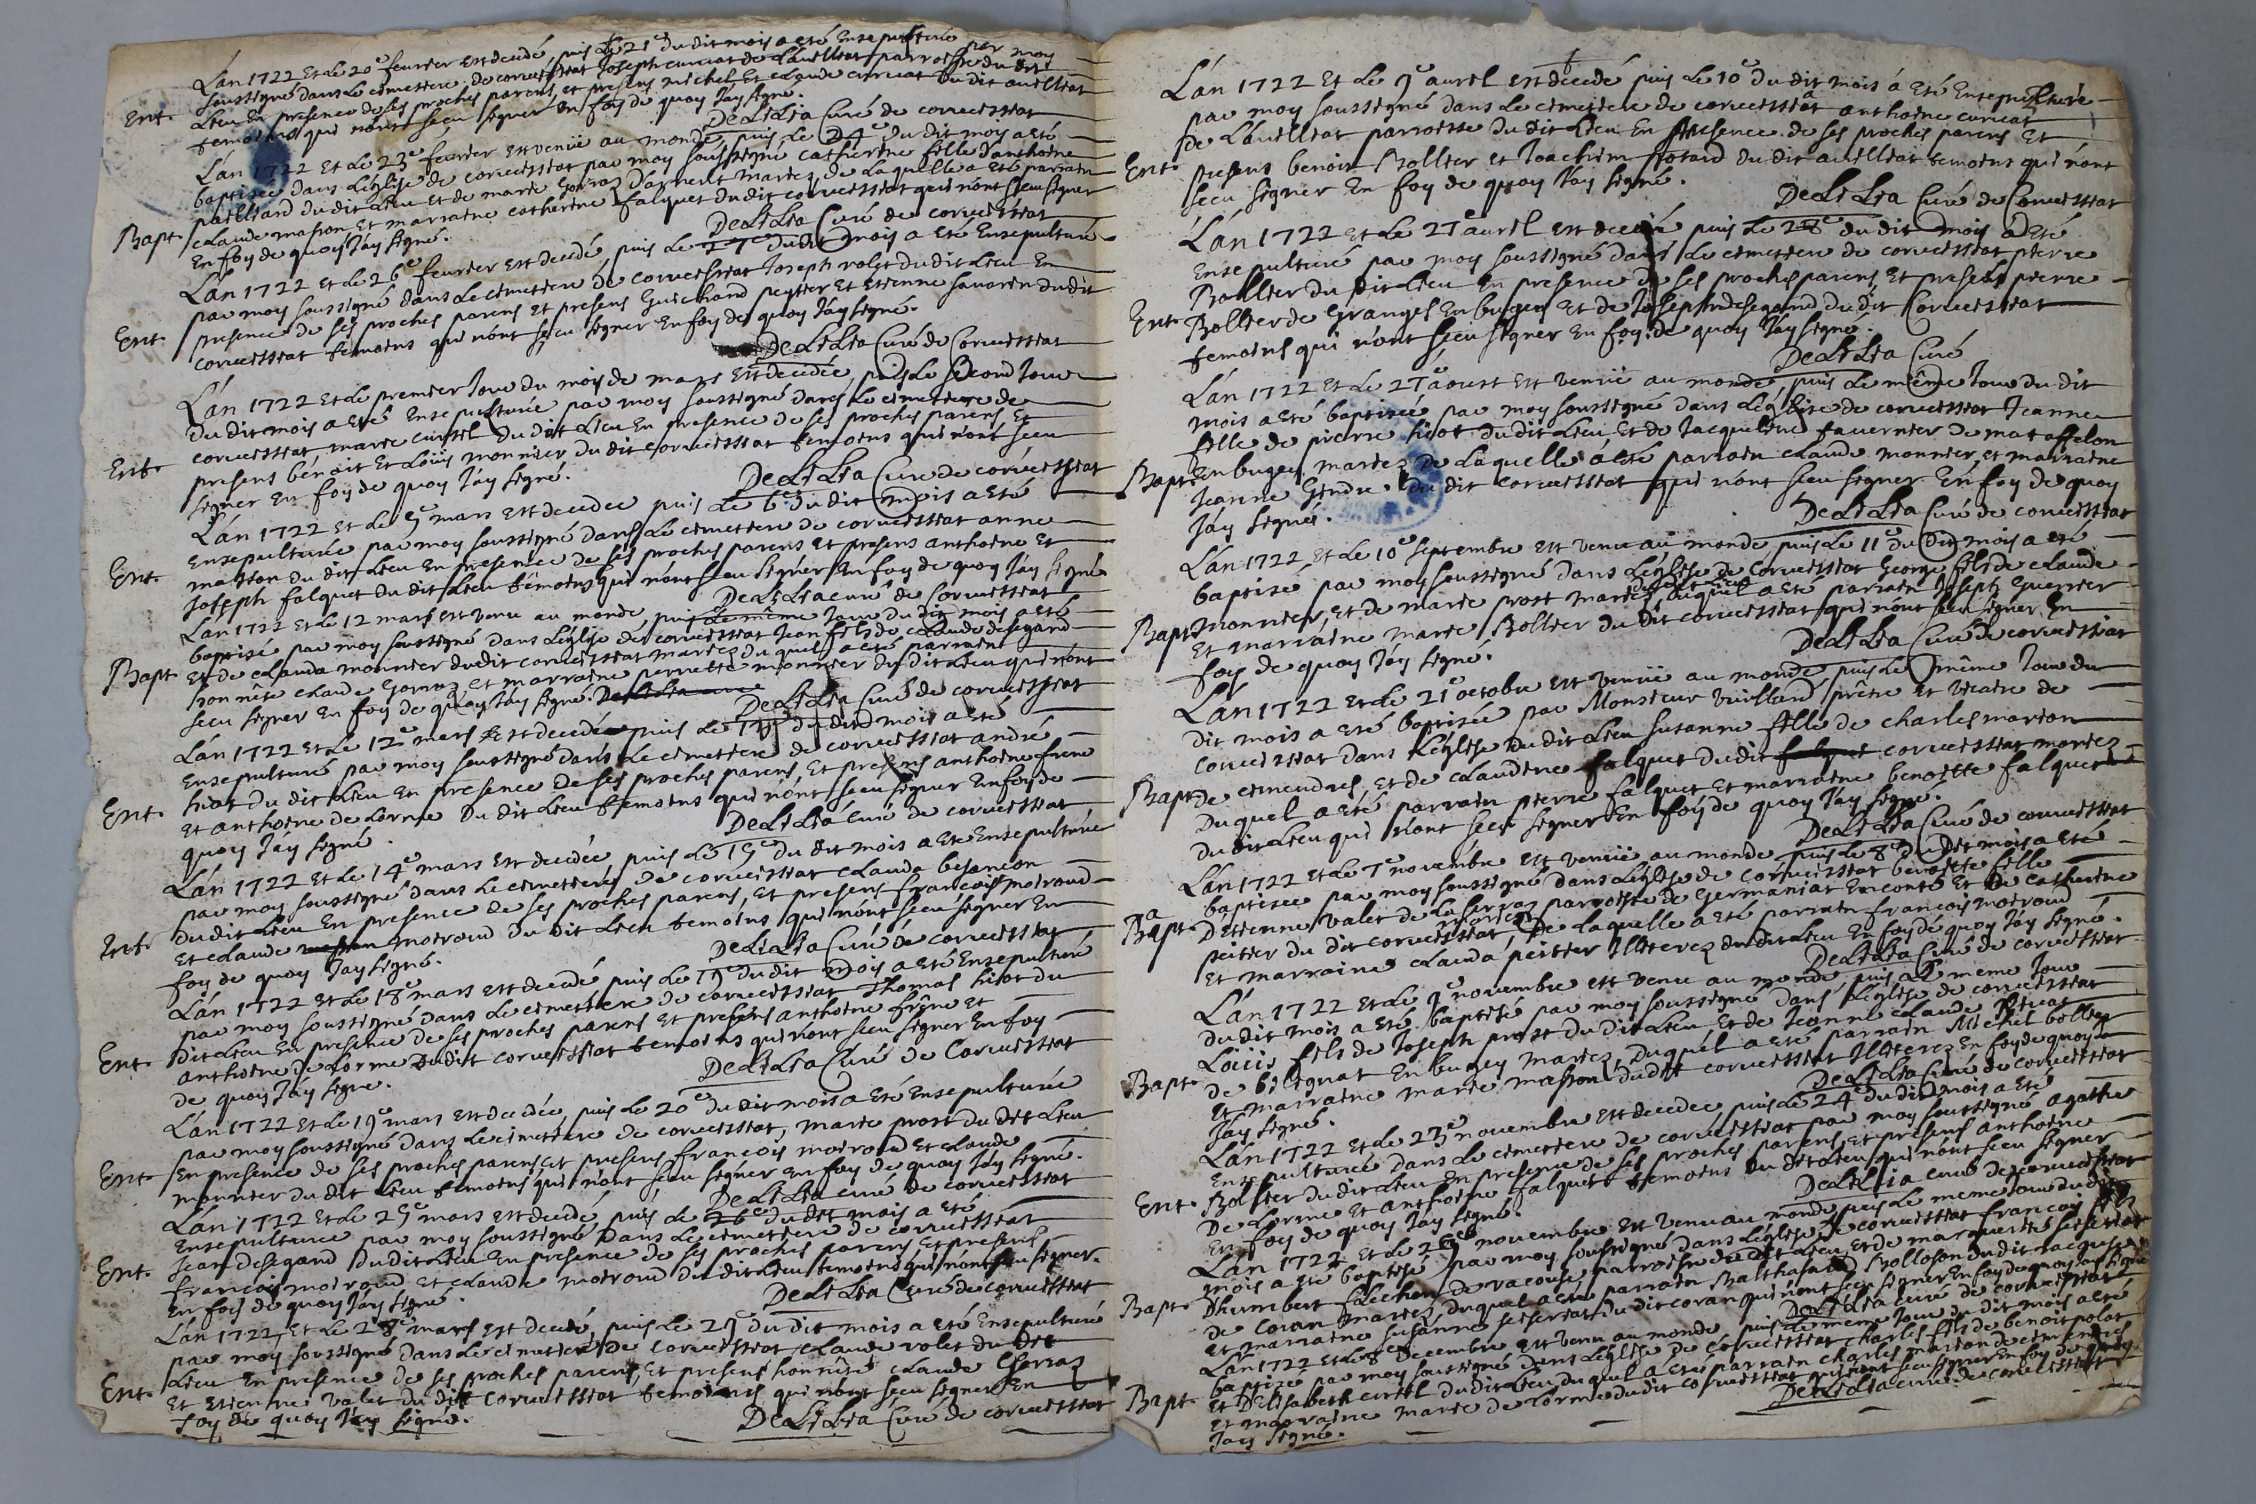 L'an 1722 et le 20e fevrier est decedé, puis le 21e du dit mois a eté ensepulturé par moy
soussigné dans le cimetiere de corveissiat Joseph curvat de Lavilliat parroisse du dit
Ent. lieu en presence de ses proches parens, et presens michel et claude curvat du dit avilliat
temoins qui n'ont sceu signer en foy de quoy j'ay signé.
DeLiLia Curé de corveissiat
L'an 1722 et le 23e fevrier est venüe au monde puis le 24e du dit mois a eté
baptisée dans l'église de corveissiat par moy soussigné catherine fille d'anthoine
paillard du dit lieu et de marie gorraz d'arnent mariez, de laquelle a eté parrain
Bapt. claude masson et marraine catherine falquet du dit corveissiat qui n'ont sceu signer
en foy de quoy j'ay signé.
DeLiLia Curé de corveissiat
L'an 1722 et le 26e fevrier est decedé, puis le 27e du dit mois a eté ensepulturé
par moy soussigné dans le cimetiere de corveissiat Joseph volet du dit lieu en
Ent. presence de ses proches parens et presens Guichard peytier et etienne savarin du dit
corveissiat temoins qui n'ont sceu signer en foy de quoy j'ay signé.
DeLiLia Curé de Corveissiat
L'an 1722 et le premier jour du mois de mars est decedée, puis le second jour
du dit mois a eté ensepulturée par moy soussigné dans le cimetiere de
Ent. corveissiat marie curtil du dit lieu en presence de ses proches parens et
presens benoit et Loüis monnier du dit corveissiat temoins qui n'ont sceu
signer en foy de quoy j'ay signé.
DeLiLia Curé de corveissiat
L'an 1722 et le 5e mars est decedée puis le 6e du dit mois a eté
ensepulturée par moy soussigné dans le cimetiere de corveissiat anne
Ent. masson du dit lieu en presence de ses proches parens et presens anthoine et
Joseph falquet du dit lieu temoins qui n'ont sceu signer en foy de quoy j'ay signé
DeLiLia curé de Corveissiat
L'an 1722 et le 12 mars est venu au monde puis le même jour du dit mois a eté
baptisé par moy soussigné dans l'église de corveissiat Jean fils de claude desegand
Bapt. et de clauda monnier du dit corveissiat mariez duquel a eté parrain
honnête claude gorraz et marraine pernette monnier du dit lieu qui n'ont
sceu signer en foy de quoy j'ay signé.
DeLiLia Curé de corveissiat
L'an 1722 et le 12e mars est decedé puis le 13e du dit mois a eté
ensepulturé par moy soussigné dans le cimetiere de corveissiat andré
Ent. hiot du dit lieu en presence de ses proches parens, et presens anthoine frene
et anthoine de Lorme du dit lieu temoins qui n'ont sceu signer en foy de
quoy j'ay signé.
DeLiLia curé de corveissiat
L'an 1722 et le 14e mars est decedée puis le 15e du dit mois a eté ensepulturée
par moy soussigné dans le cimetiere de corveissiat clauda besancon
Ent. du dit lieu en presence de ses proches parens, et presens francois moiroud
et claude moiroud du dit lieu temoins qui n'ont sceu signer en
foy de quoy j'ay signé.
DeLiLia Curé de corveissiat
L'an 1722 et le 18e mars est decedé puis le 19e du dit mois a eté ensepulturé
par moy soussigné dans le cimetiere de corveissiat Thomas hiot du
Ent. dit lieu en presence de ses proches parens et presens anthoine frêne et
anthoine de Lorme du dit corveissiat temoins qui n'ont sceu signer en foy
de quoy j'ay signé.
DeLiLia Curé de Corveissiat
L'an 1722 et le 19e mars est decedée, puis le 20e du dit mois a eté ensepulturée
par moy soussigné dans le cimetiere de corveissiat, marie prost du dit lieu
Ent. en presence de ses proches parens, et presens francois moiroud et claude
monnier du dit lieu temoins qui n'ont sceu signer en foy de quoy j'ay signé.
DeLiLia curé de corveissiat
L'an 1722 et le 25e mars est decedé, puis le 26e du dit mois a eté
ensepulturé par moy soussigné dans le cimetiere de corveissiat
Ent. Jean desegand du dit lieu en presence de ses proches parens, et presens
francois moiroud et claude moiroud du dit lieu temoins qui n'ont sceu signer
en foy de quoy j'ay signé.
DeLiLia Curé de corveissiat
L'an 1722 et le 28e mars est decedé, puis le 29 du dit mois a eté ensepulturé
par moy soussigné dans le cimetiere de corveissiat claude volet du dit
Ent. lieu en presence de ses proches parens, et presens honnête claude gorraz
et etienne valet du dit corveissiat temoins qui n'ont sceu signer en
foy de quoy j'ay signé.
DeLiLia Curé de corveissiat
L'an 1722 et le 9e avril est decedé puis le 10e du dit mois a eté ensepulturé
par moy soussigné dans le cimetiere de corveissiat anthoine curvat
de Lavilliat parroisse du dit lieu en presence de ses proches parens et
Ent. presens benoit Bollier et Joachim notard du dit avilliat temoins qui n'ont
sceu signer en foy de quoy j'ay signé.
DeLiLia Curé de Corveissiat
L'an 1722 et le 27 avril est decedé puis le 28e du dit mois a eté
ensepulturé par moy soussigné dans le cimetiere de corveissiat pierre
Boullier du dit lieu en presence de ses proches parens et presens pierre
Ent. Bollier de Granges en bugey et de Joseph desegand du dit Corveissiat
temoins qui n'ont sceu signer en foy de quoy j'ay signé.
DeLiLia Curé
L'an 1722 et le 27e aoust est venüe au monde, puis le même jour du dit
mois a eté baptisée par moy soussigné dans l'église de corveissiat Jeanne
fille de pierre hiot du dit lieu, et de Jacqueline favernier de mataffelon
Bapt. en bugey mariez de laquelle a eté parrain claude monnier, et marraine
Jeanne Gindre du dit corveissiat qui n'ont sceu signer en foy de quoy
j'ay signé.
DeLiLia Curé de corveissiat
L'an 1722 et le 10e septembre est venu au monde, puis le 11e du dit mois a eté
baptisé par moy soussigné dans l'église de Corveissiat George fils de claude
Bapt. monnier, et de marie prost mariez duquel a eté parrain Joseph Guerrier
et marraine marie Bollier du dit corveissiat qui n'ont sceu signer en
foy de quoy j'ay signé.
DeLiLia Curé de corveissiat
L'an 1722 et le 21e octobre est venüe au monde, puis le même jour du
dit mois a eté baptisée par Monsieur vuillard prêtre et vicaire de
corveissiat dans l'église du dit lieu susanne fille de charles marion
Bapt. de cimendres, et de claudine falquet du dit corveissiat mariez
duquel a eté parrain pierre falquet et marraine benoitte falquet
du dit lieu qui n'ont sceu signer en foy de quoy j'ay signé.
DeLiLia Curé de corveissiat
L'an 1722 et le 7e novembre est venüe au monde puis le 8e du dit mois a eté
baptisée par moy soussigné dans l'église de corveissiat benoitte fille
Bapt. d'etienne valet de la serraz parroisse de Germaniat en conté et de catherine
peitier du dit corveissiat, mariez de laquelle a eté parrain francois moiroud
et marraine clauda peitier illiterez du dit lieu en foy de quoy j'ay signé.
DeLiLia Curé de corveissiat
L'an 1722 et le 9e novembre est venu au monde puis le meme jour
du dit mois a eté baptisé par moy soussigné dans l'église de corveissiat
Loüis fils de Joseph prost du dit lieu et de Jeanne claude
Bapt. de bilignat en bugey mariez, duquel a eté parrain Michel bollier
et marraine marie masson du dit corveissiat illiterez en foy de quoy
j'ay signé.
DeLiLia Curé de corveissiat
L'an 1722 et le 23e novembre est decedée puis le 24e du dit mois a eté
ensepulturée dans le cimetiere de corveissiat par moy soussigné agathe
Ent. Bollier du dit lieu en presence de ses proches parens, et presens anthoine
De Lorme et anthoine falquet temoins du dit lieu qui n'ont sceu signer
en foy de quoy j'ay signé.
DeLiLia curé de corveissiat
L'an 1722 et le 26e novembre est venu au monde puis le meme jour du dit
mois a eté baptisé par moy soussigné dans l'église de corveissiat francois fils
Bapt. d'humbert de racouse parroisse du dit lieu, et de marguerite
de coran mariez duquel a eté parrain Balthasard Bolloson du dit racouse
et marraine susanne du dit coran qui n'ont sceu signer en foy de quoy j'ay signé
DeLiLia curé de corveissiat
L'an 1722 et le 8e decembre est venu au monde puis le meme jour du dit mois a eté
baptisé par moy soussigné dans l'église de corveissiat charles fils de benoit polat
Bapt. et d'Elisabeth curtil du dit lieu duquel a eté parrain charles marion de cimendres
et marraine marie de Lorme du dit corveissiat qui n'ont sceu signer en foy de quoy
j'ay signé.
DeLiLia curé de corveissiat